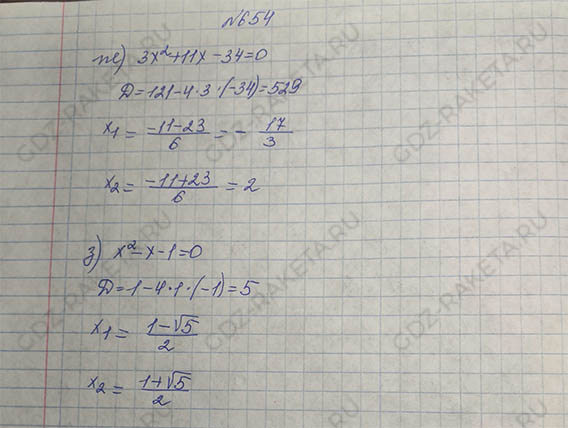 №654
ж) 3x²+11x-34=0
Д=121-4·3·(-34)=529
x₁= -11-23/6 = - 17/3
x₂= -11+23/6 = 2
з) x²-x-1=0
Д=1-4·1·(-1)=5
x₁= 1-√5/2
x₂= 1+√5/2
GDZ-RAKETA.RU
GDZ-RAKETA.RU
GDZ-RAKETA.RU
GDZ-RAKETA.RU
GDZ-RAKETA.RU
GDZ-RAKETA.RU